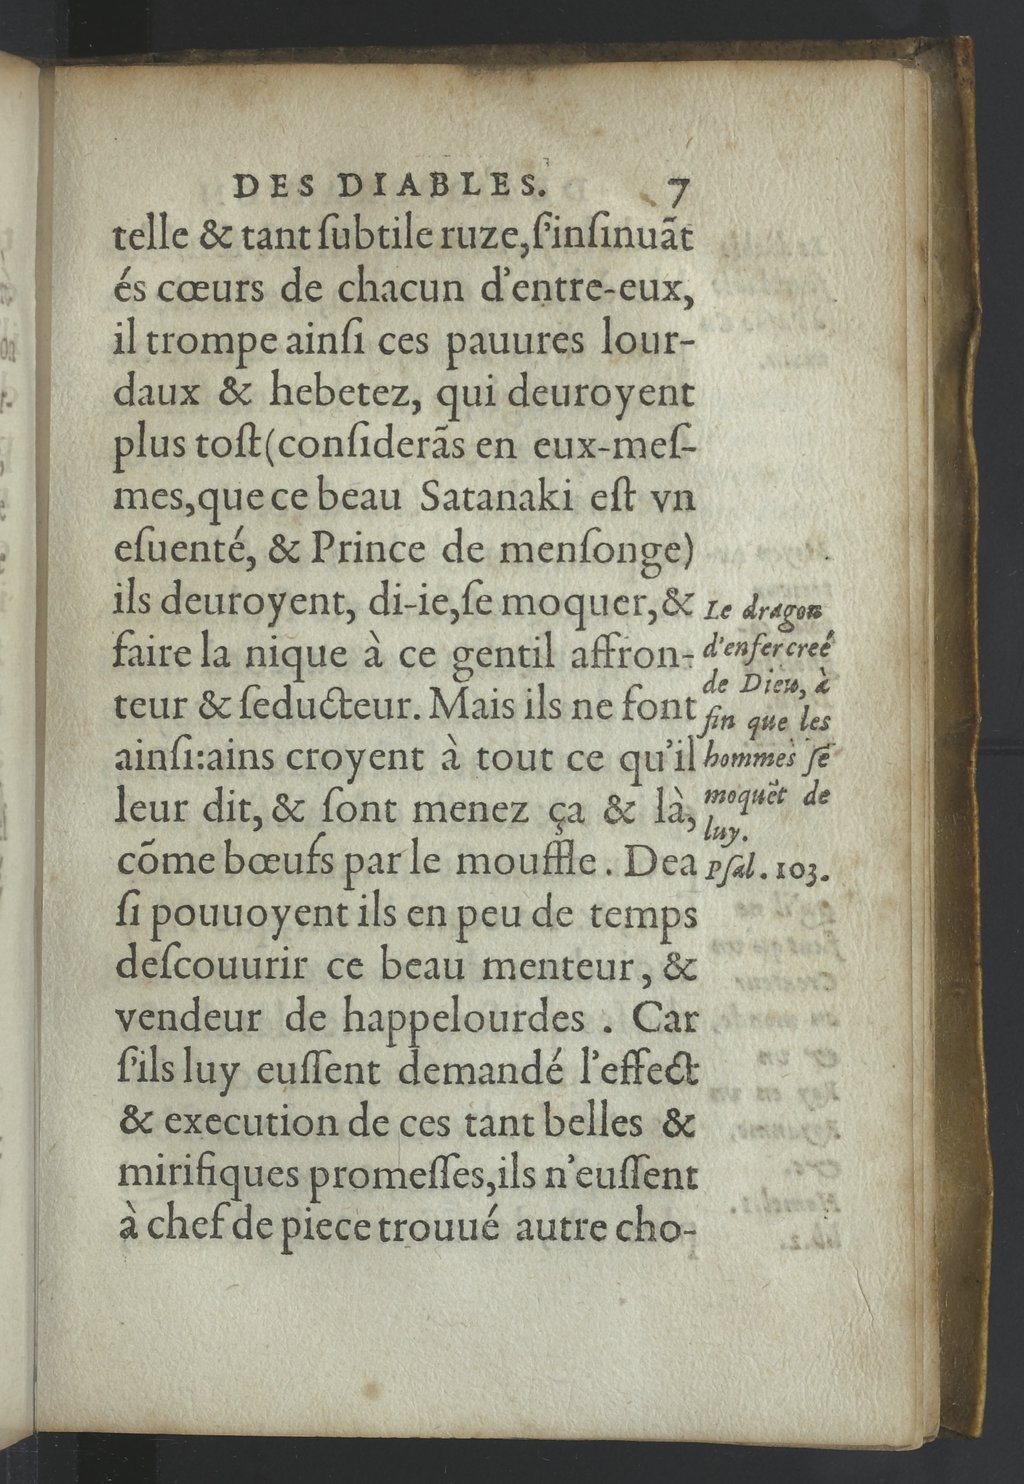 DES DIABLES. 7
telle & tant ſubtile ruze,ſ'inſinuãt
és cœurs de chacun d'entre-eux,
il trompe ainſi ces pauures lour-
daux & hebetez, qui deuroyent
plus toſt(conſiderãs en eux-meſ-
mes,que ce beau Satanaki eſt vn
eſuenté, & Prince de menſonge)
ils deuroyent, di-ie,ſe moquer,&
faire la nique à ce gentil affron-
teur & ſeducteur. Mais ils ne font
ainſi:ains croyent à tout ce qu'il
leur dit, & ſont menez ça & là,
cõme bœufs par le mouffle. Dea
ſi pouuoyent ils en peu de temps
deſcouurir ce beau menteur, &
vendeur de happelourdes . Car
ſ'ils luy euſſent demandé l'effect
& execution de ces tant belles &
mirifiques promeſſes,ils n'euſſent
à chef de piece trouué autre cho-
Le dragon
d'enfer creé
de Dieu, à
fin que les
hommes ſe
moquẽt de
luy.
Pſal. 103.